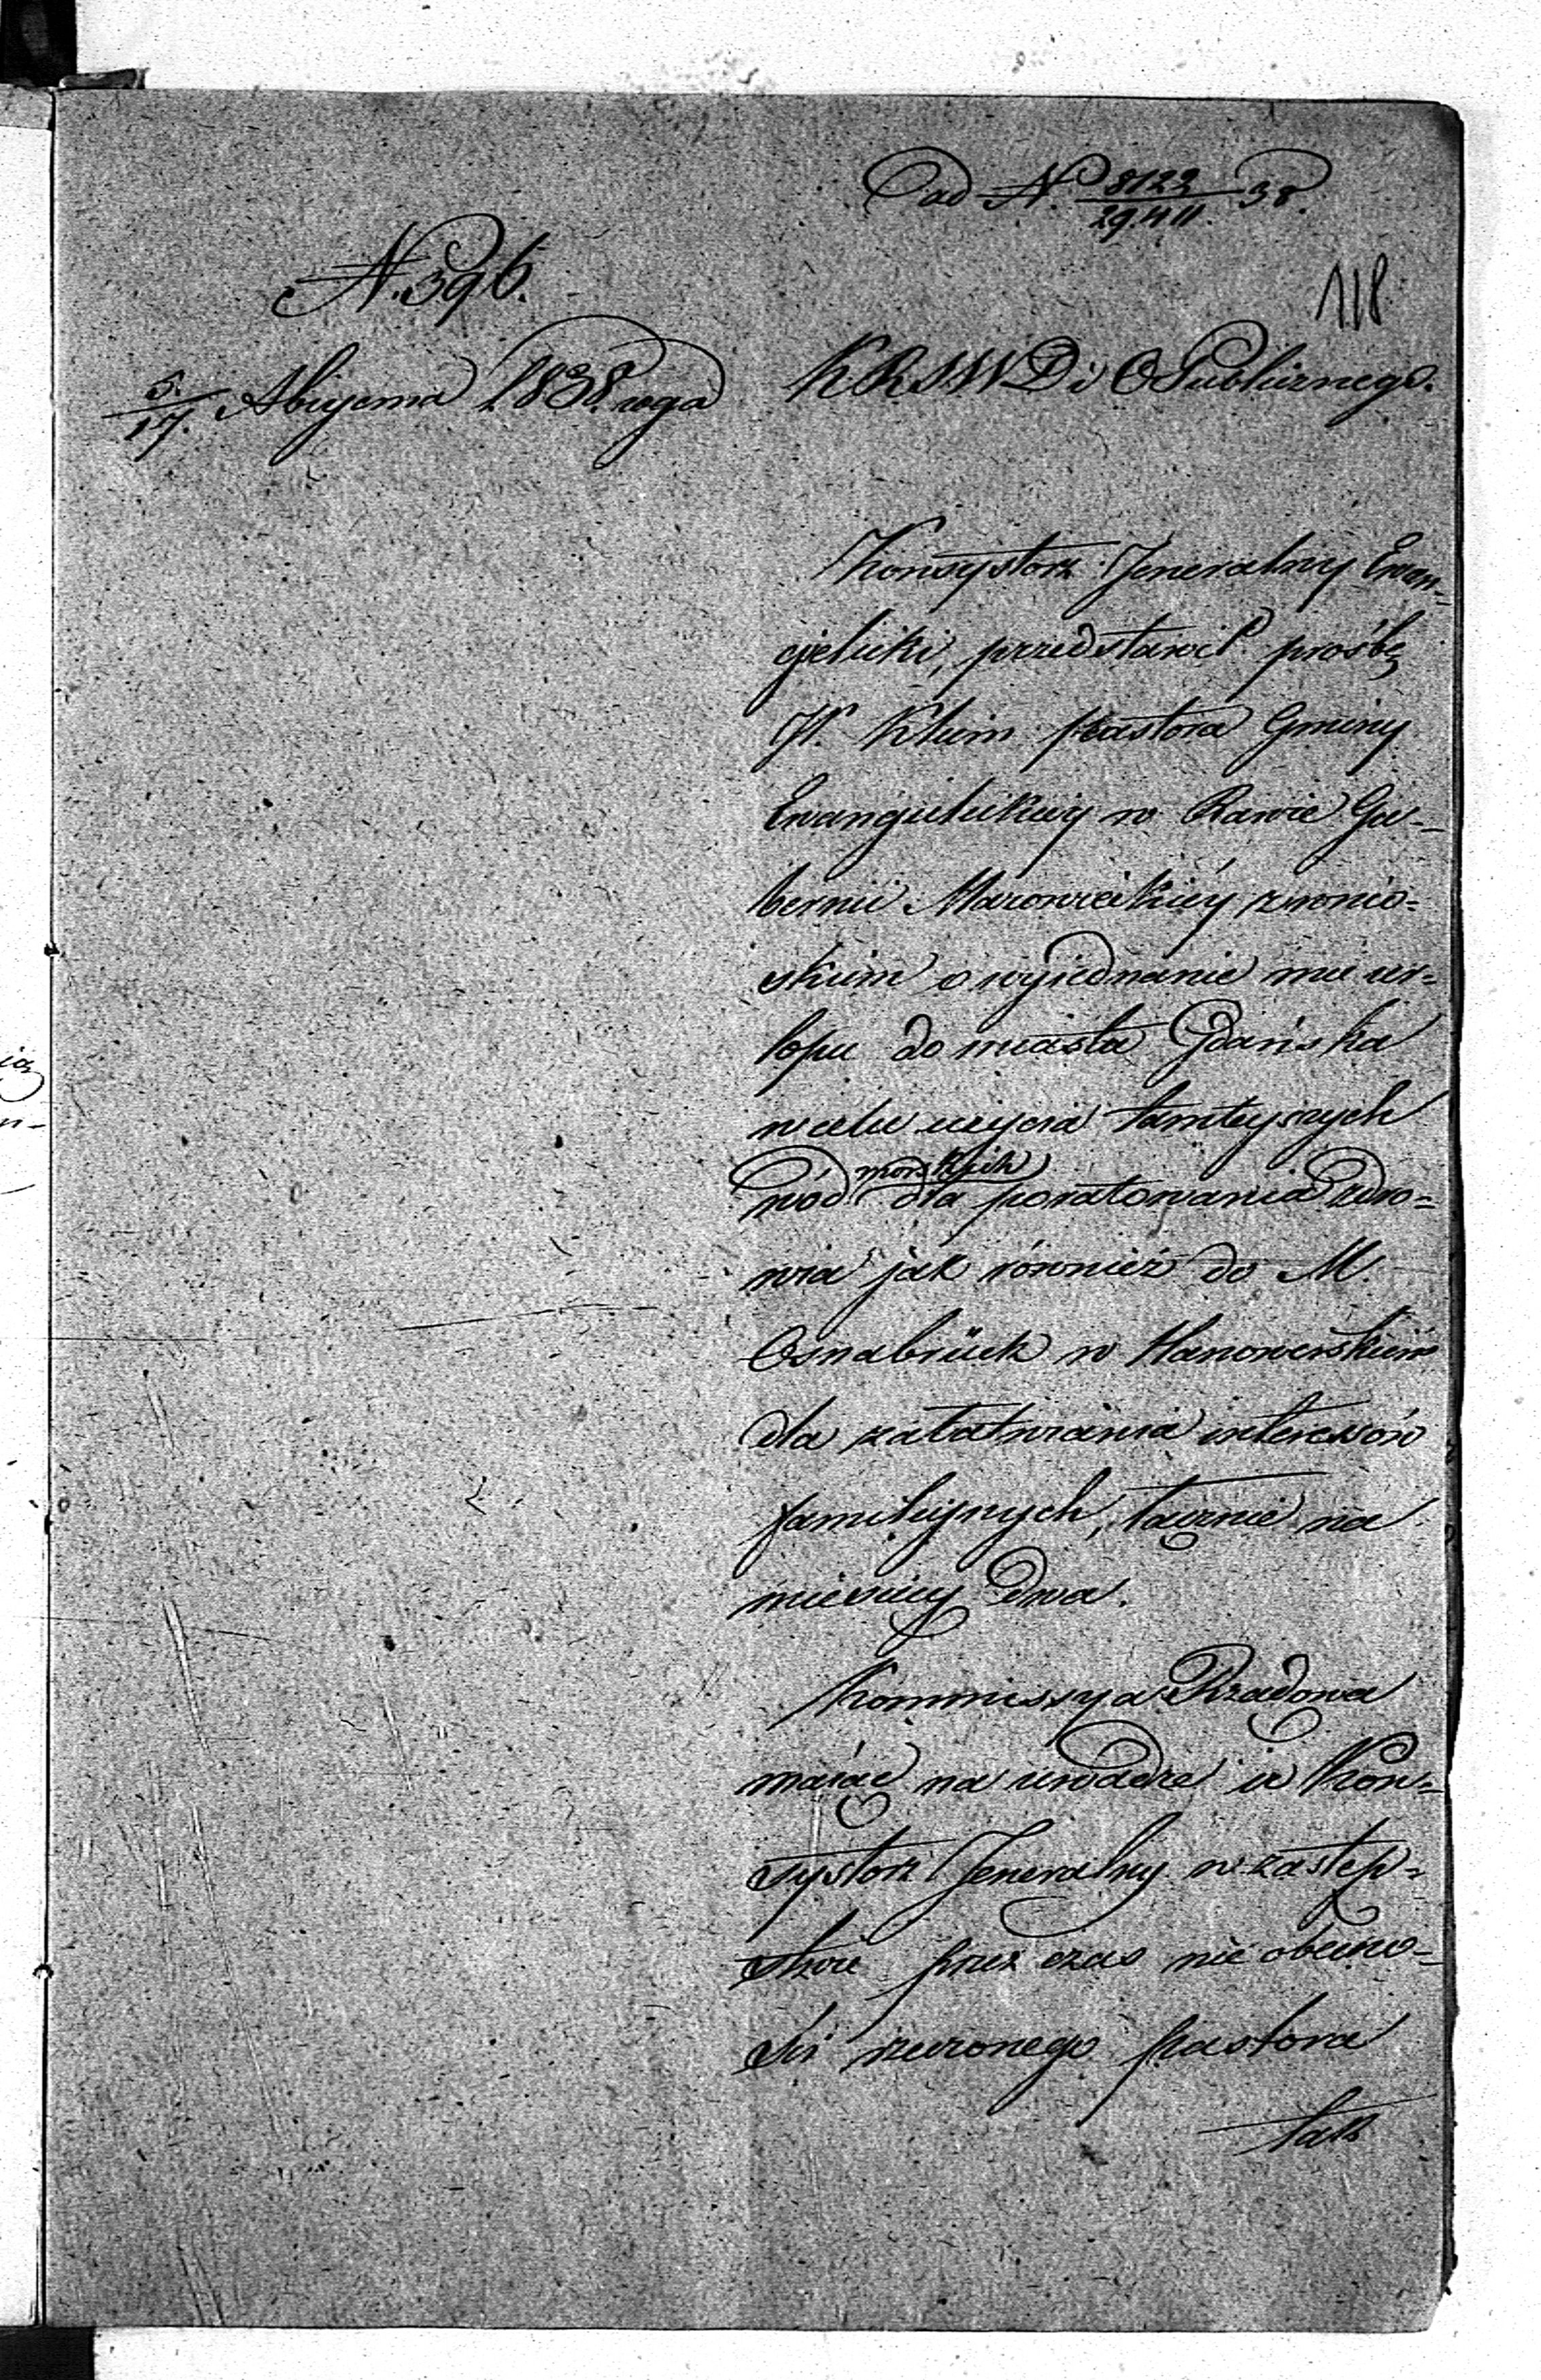 ad N. 8122/29.411. 38.
N. 396.
118
5./17. Августа 1838. года
K R S W D i O Publicznego.
Konsystorz Jeneralny Ewan-
gelicki, przedstawił prośbę
W. Klim pastora Gminy
Ewangelickiey w Rawie Gu-
bernii Mazowieckiéy z wnio-
skiem o wyiednanie mu ur-
lopu do miasta Gdańska
w celu użycia tamteyszych
wód morskich dla poratowania zdro-
wia jak również do M.
Osnabrück w Hanowerskiem
dla załatwiania interessów
familijnych, łącznie na
miesięcy dwa.
Kommissya Rządowa
maiąc na uwadze iż Kon-
systorz Jeneralny w zastęp-
stwie przez czas nieobecno-
ści rzeczonego pastora
tak